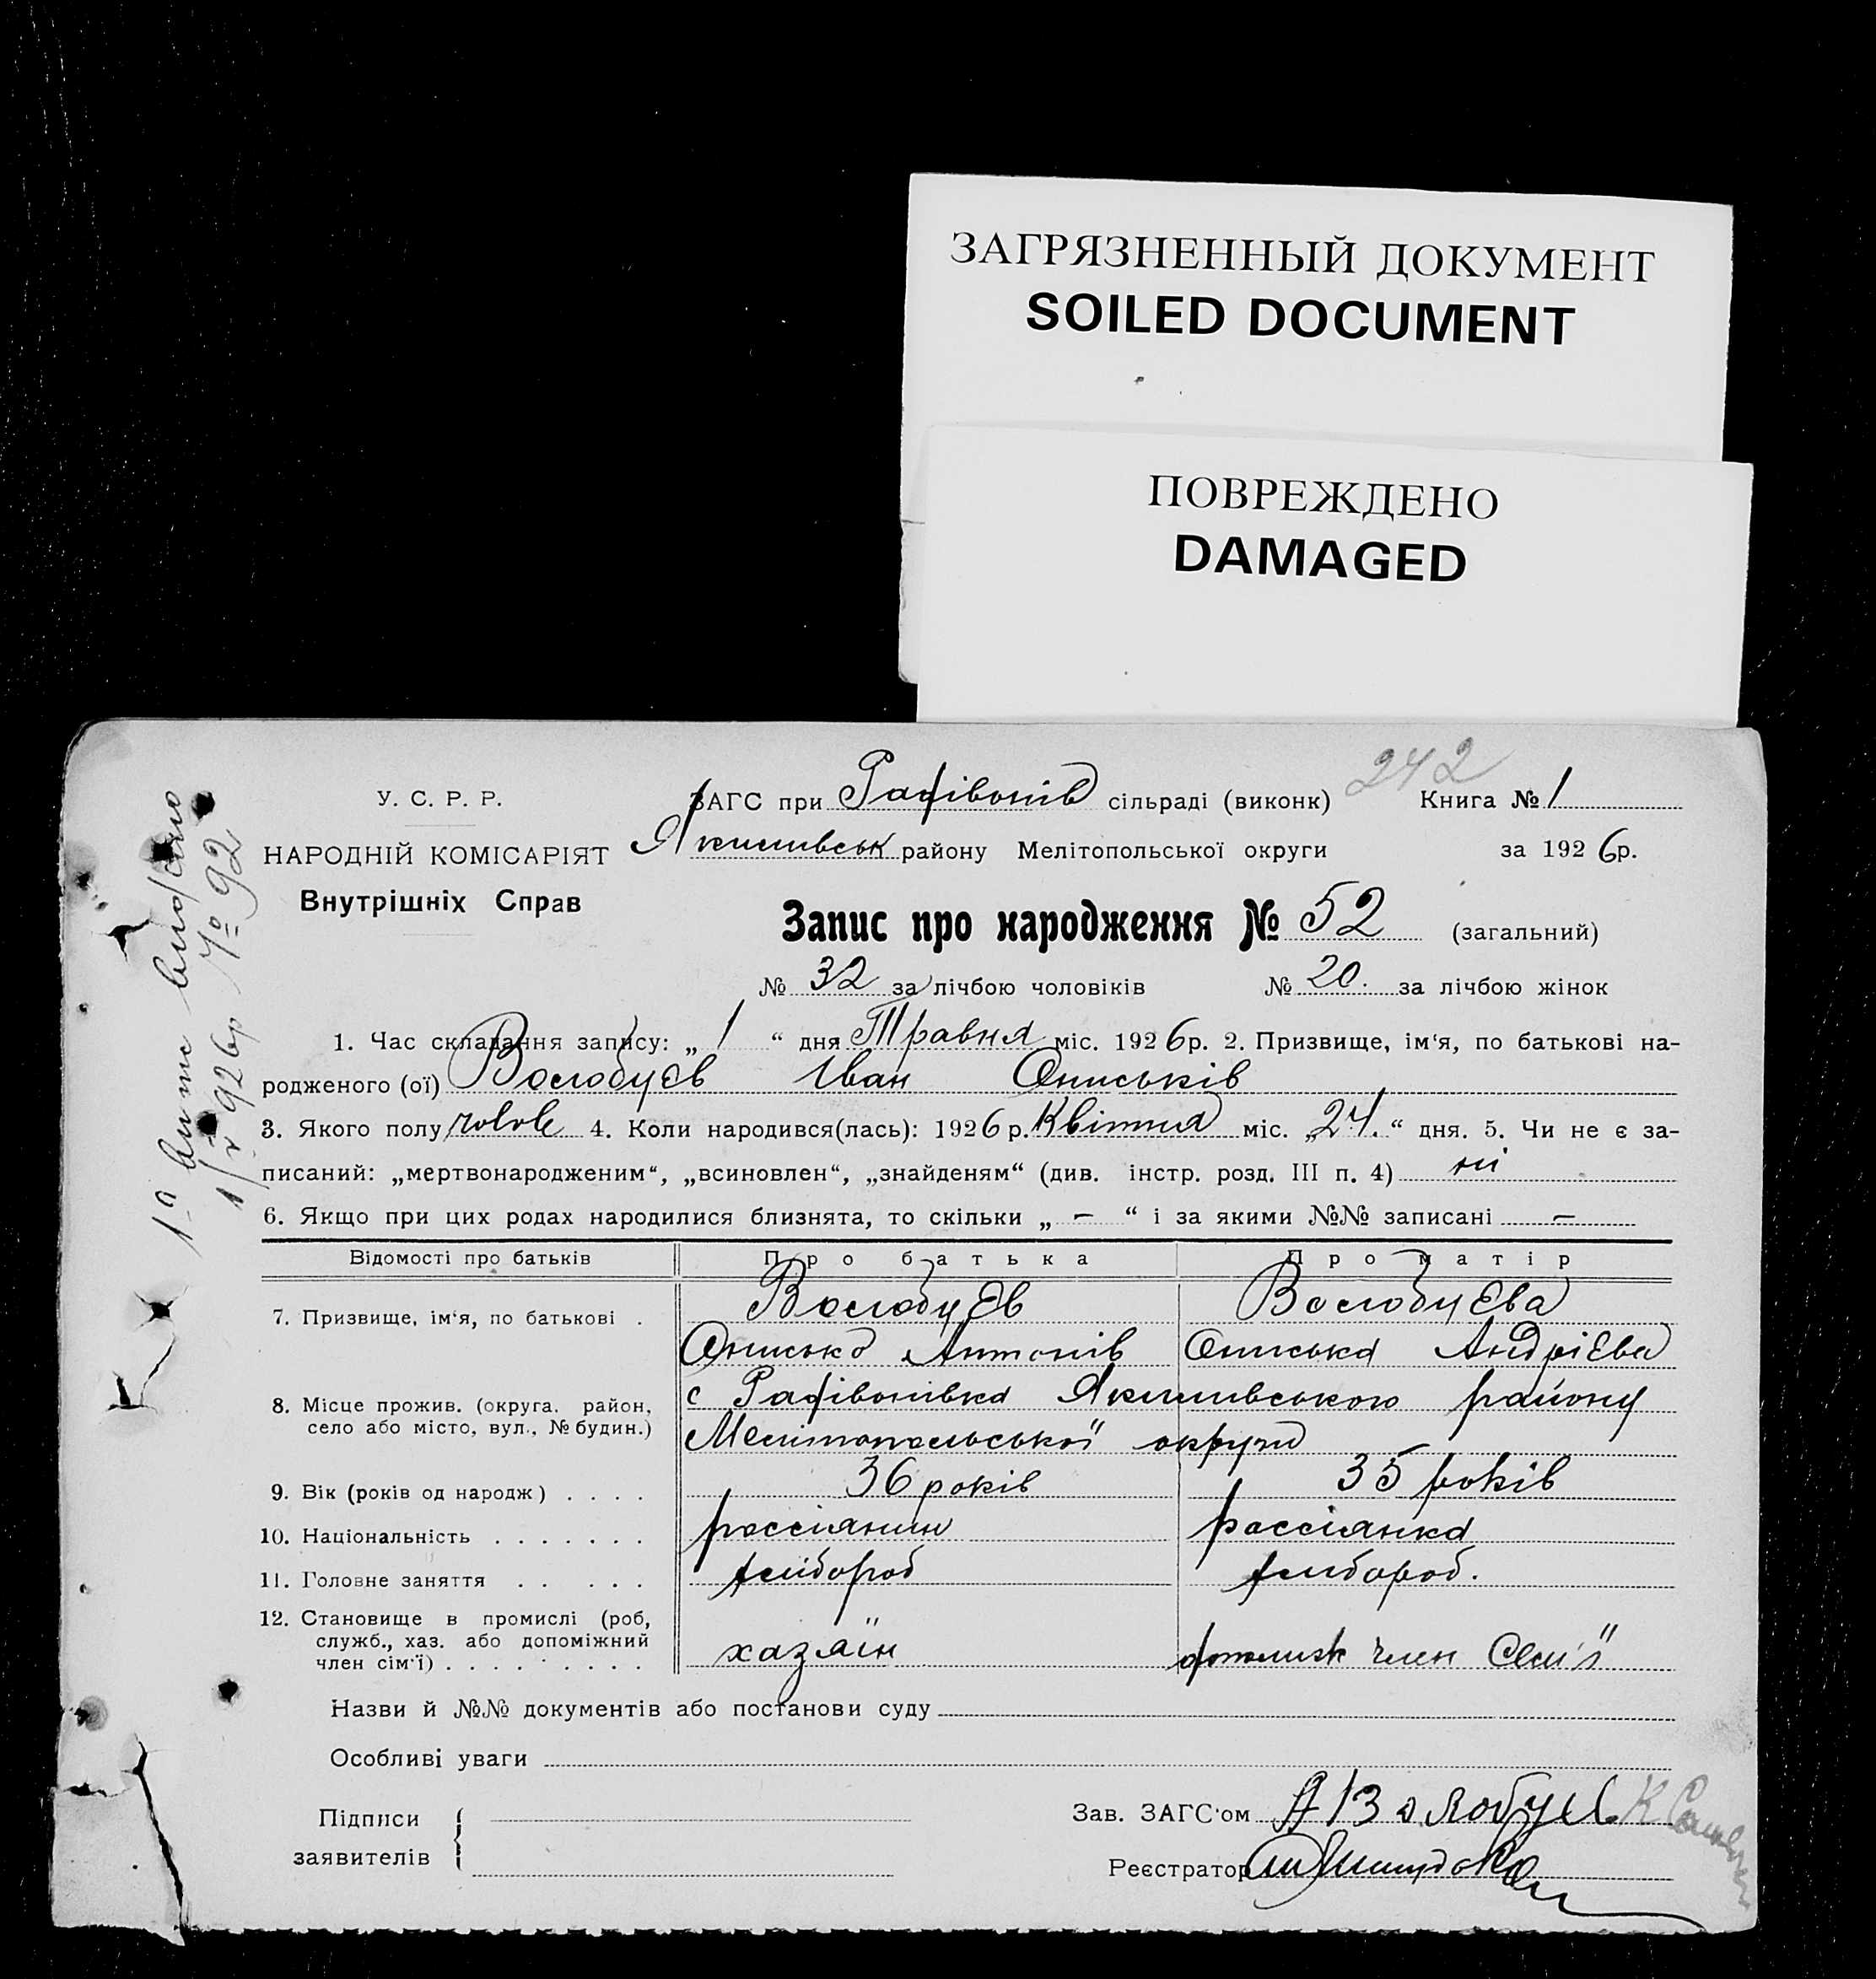 ЗАГРЯЗНЕННЫЙ ДОКУМЕНТ
SOILED DOCUMENT
ПОВРЕЖДЕНО
DAMAGED
242
У. С. Р. Р.
ЗАГС при Радівонів сільраді (виконк) Книга № 1
НАРОДНІЙ КОМІСАРІЯТ
Якимівськ району Мелітопольської округи за 1926р.
Внутрішніх Справ
Запис про народження № 52 (загальний)
№ 32 за лічбою чоловіків № 20. за лічбою жінок
1. Час складання запису: „ 1 “ дня Травня міс. 1926р. 2. Призвище, ім‘я, по батькові на-
родженого (ої) Волобуєв Іван Ониськів
3. Якого полу чолов 4. Коли народився(лась): 1926р. Квітня міс. „24.“ дня. 5. Чи не є за-
писаний: „мертвонародженим“, „всиновлен“, „знайденям“ (див. інстр. розд. III п. 4) ні
6. Якщо при цих родах народилися близнята, то скільки „ – “ і за якими №№ записані –
Відомості про батьків Про батька Про матір
7. Призвище, ім‘я, по батькові . Волобуєв Волобуєва
Онисько Антонів Ониська Андрієва
8. Місце прожив. (округа, район, с Радівонівка Якимивського району
село або місто, вул., № будин.) Мелітопольської округи
9. Вік (років од народж) . . . . 36 років 35 років
10. Національність . . . . . . . россіянин россіянка
11. Головне заняття . . . . . хлібороб хлібороб.
12. Становище в промислі (роб,
служб., хаз. або допоміжний
член сім‘ї) . . . . . . . . . хазяїн член Сем'ї
Назви й №№ документів або постанови суду
Особливі уваги
Підписи
заявителів
Зав. ЗАГС‘ом
Реєстратор
1/V 926р № 92